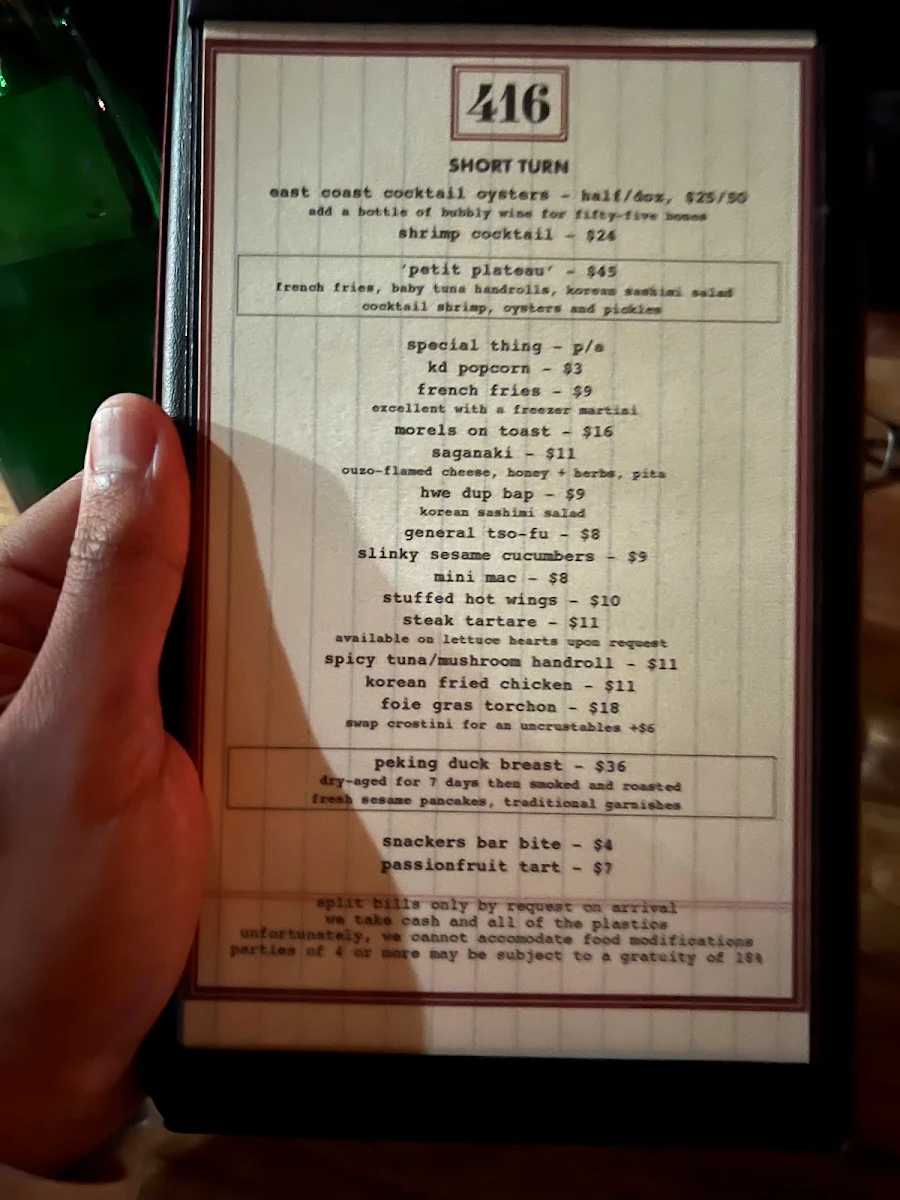 416
SHORT TURN
east coast cocktail oysters - half/doz, $25/50
add a bottle of bubbly wine for fifty-five bones
shrimp cocktail - $24
'petit plateau' - $45
french fries, baby tuna handrolls, korean sashimi salad
cocktail shrimp, oysters and pickles
special thing - p/a
kd popcorn - $3
french fries - $9
excellent with a freezer martini
morels on toast - $16
saganaki - $11
ouzo-flamed cheese, honey + herbs, pita
hwe dup bap - $9
korean sashimi salad
general tso-fu - $8
slinky sesame cucumbers - $9
mini mac - $8
stuffed hot wings - $10
steak tartare - $11
available on lettuce hearts upon request
spicy tuna/mushroom handroll - $11
korean fried chicken - $11
foie gras torchon - $18
swap crostini for an uncrustables +$6
peking duck breast - $36
dry-aged for 7 days then smoked and roasted
fresh sesame pancakes, traditional garnishes
snackers bar bite - $4
passionfruit tart - $7
split bills only by request on arrival
we take cash and all of the plastics
unfortunately, we cannot accomodate food modifications
parties of 4 or more may be subject to a gratuity of 18%